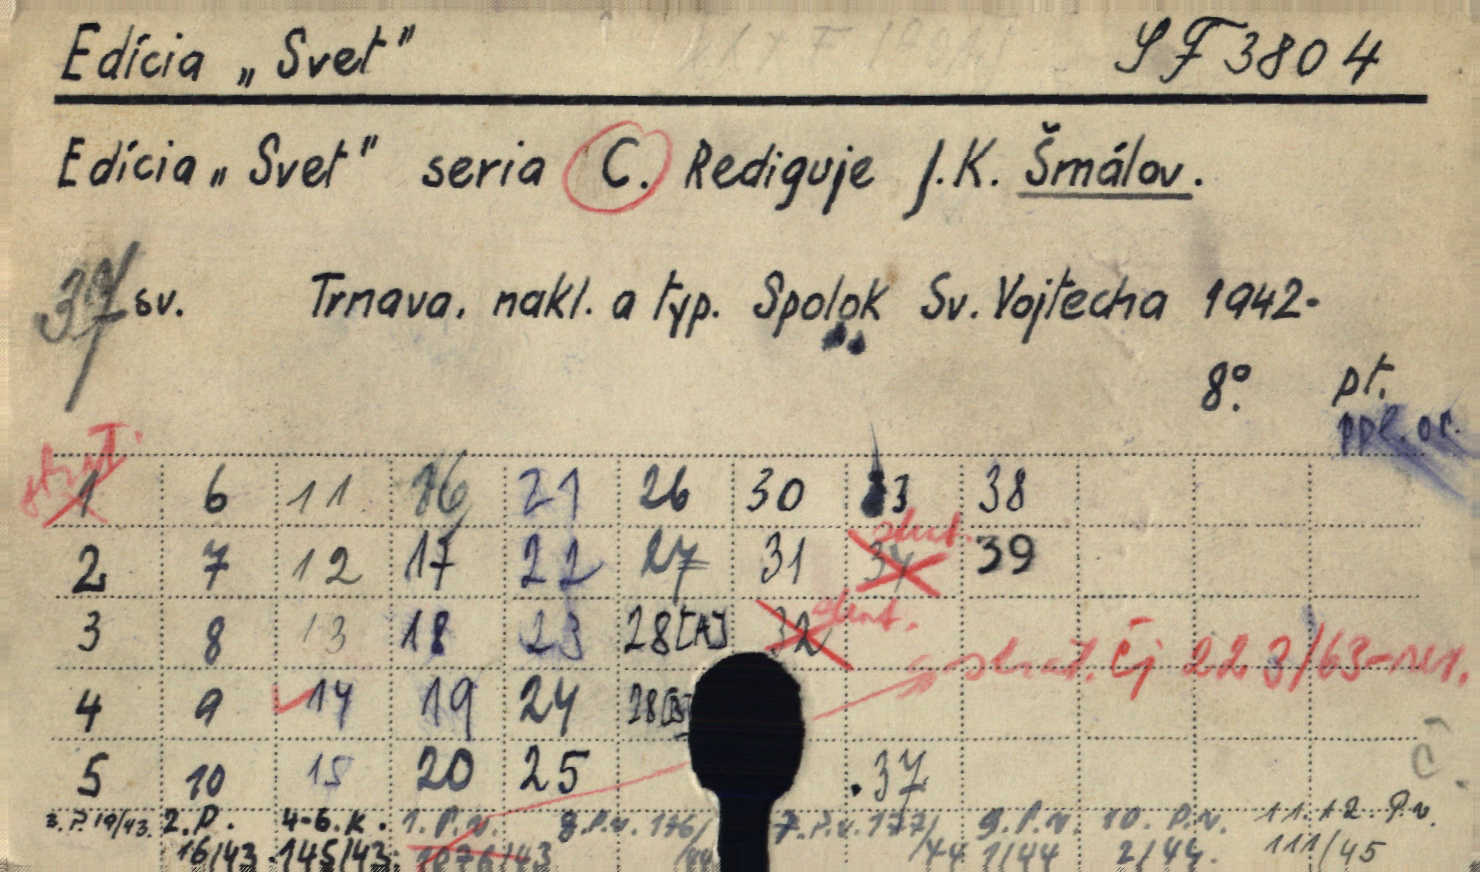 Edícia „Svet" SF 3804
Edícia „Svet" seria C. Rediguje J.K. Šmálov.
sv. Trnava. nakl. a typ. Spolok Sv. Vojtecha 1942-
8°. pt.
ppl. or.
1 6 11 16 21 26 30 33 38
skrt.
2 7 12 17 22 27 31 34 39
skrt.
3 8 13 18 23 28[A] 32
čj 223/63-
4 9 14 19 24 28[B]
č
5 10 15 20 25 37
3. P. 19/43. 2.P. 4-6.K. 1.P.v. 8.P.v. 176/ 7.P.v. 177/ 9.P.v. 10. P.v. 11.12. P.v.
16/43 145/43. 1076/43 /44 /44 1/44 2/44. 111/45